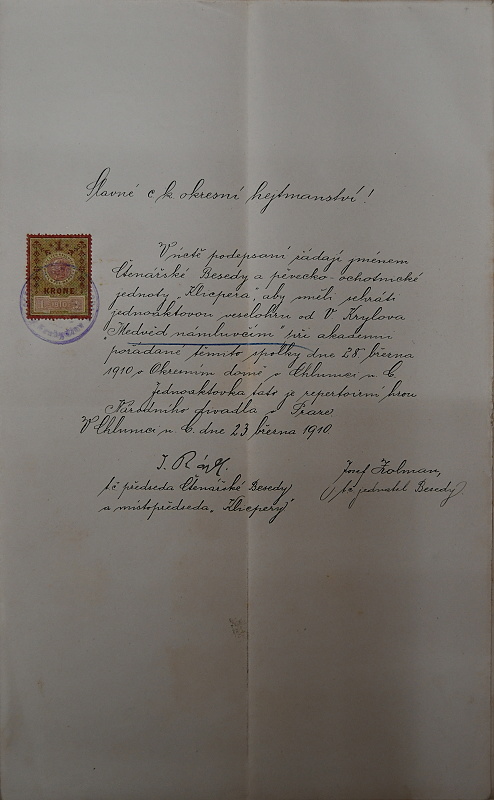 Slavné c k okresní hejtmanství!
V úctě podepsaní žádají jménem
Čtenářské Besedy a pěvecko-ochotnické
jednoty „Klicpera", aby směli sehráti
jednoaktovou veselohru od V Krylova
"Medvěd námluvčím" při akademii
pořádané těmito spolky dne 28. března
1910 v Okresním domě v Chlumci n. C.
Jednoaktovka tato je repertoirní hrou
Národního divadla v Praze
V Chlumci n. C. dne 23 března 1910.
1
KRONE
1910
J.
tč předseda Čtenářské Besedy
a místopředseda „Klicpery"
Josef Kolman,
tč jednatel Besedy.